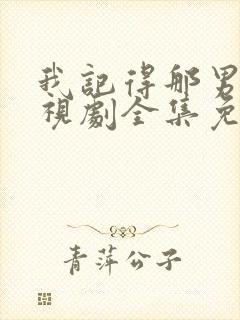 我記得那男
視劇全集免
青萍公子